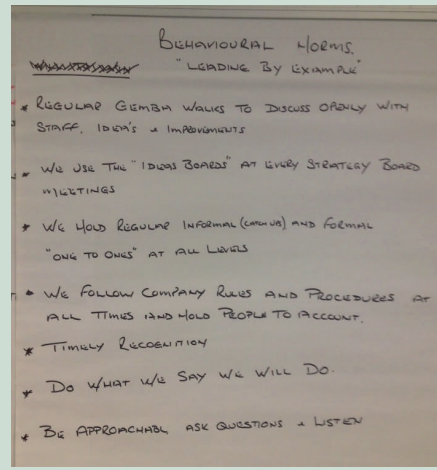 BEHAVIOURAL NORMS.
"LEADING BY EXAMPLE"
* REGULAR GEMBA WALKS TO DISCUSS OPENLY WITH
STAFF. IDEA'S & IMPROVEMENTS
* WE USE THE "IDEAS BOARDS" AT EVERY STRATEGY BOARD
MEETINGS
* WE HOLD REGULAR INFORMAL (CATCH UPS) AND FORMAL
"ONE TO ONES" AT ALL LEVELS
* WE FOLLOW COMPANY RULES AND PROCEDURES AT
ALL TIMES AND HOLD PEOPLE TO ACCOUNT.
* TIMELY RECOGNITION
* DO WHAT WE SAY WE WILL DO.
* BE APPROACHABL ASK QUESTIONS & LISTEN